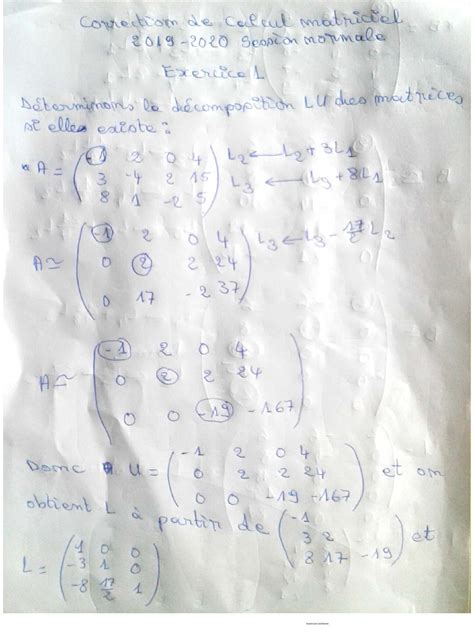 Correction de Calcul matriciel
2019-2020 Session normale
Exercice 1
Déterminons la décomposition LU des matrices
si elles existe :
* A = ( -1 2 0 4 ) L2 ← L2 + 3L1
( 3 -4 2 15 ) L3 ← L3 + 8L1
( 8 1 -2 5 )
A ≃ ( -1 2 0 4 ) L3 ← L3 - 17/2 L2
( 0 2 2 24 )
( 0 17 -2 37 )
A ≃ ( -1 2 0 4 )
( 0 2 2 24 )
( 0 0 -19 -167 )
Donc U = ( -1 2 0 4 ) et on
( 0 2 2 24 )
( 0 0 -19 -167 )
obtient L à partir de ( -1 ) et
( 3 2 )
( 8 17 -19 )
L = ( 1 0 0 )
( -3 1 0 )
( -8 17/2 1 )